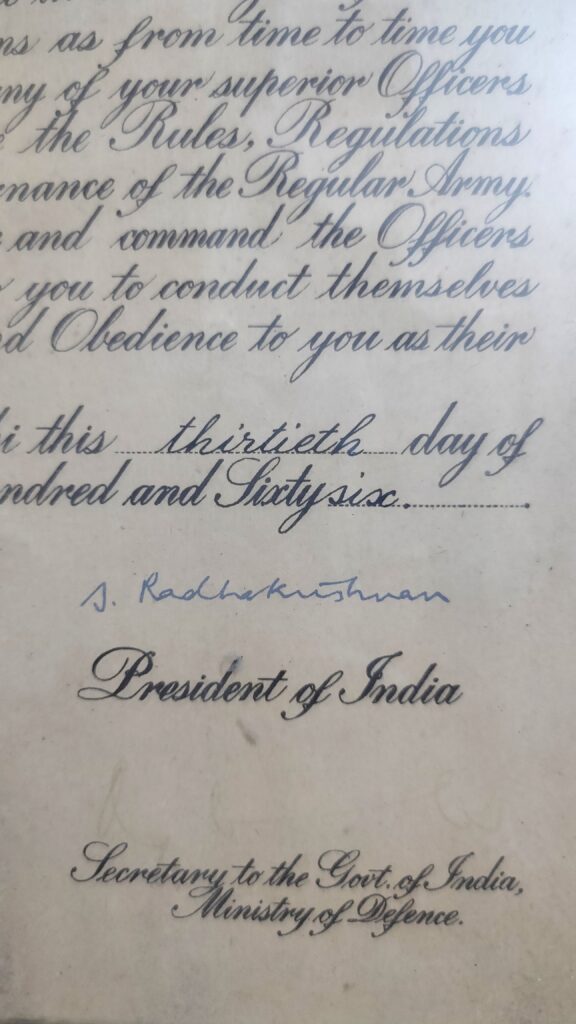 ns as from time to time you
ny of your superior Officers
the Rules, Regulations
rnance of the Regular Army.
and command the Officers
you to conduct themselves
d Obedience to you as their
i this thirtieth day of
ndred and Sixty six.
S. Radhakrishnan
President of India
Secretary to the Govt. of India,
Ministry of Defence.